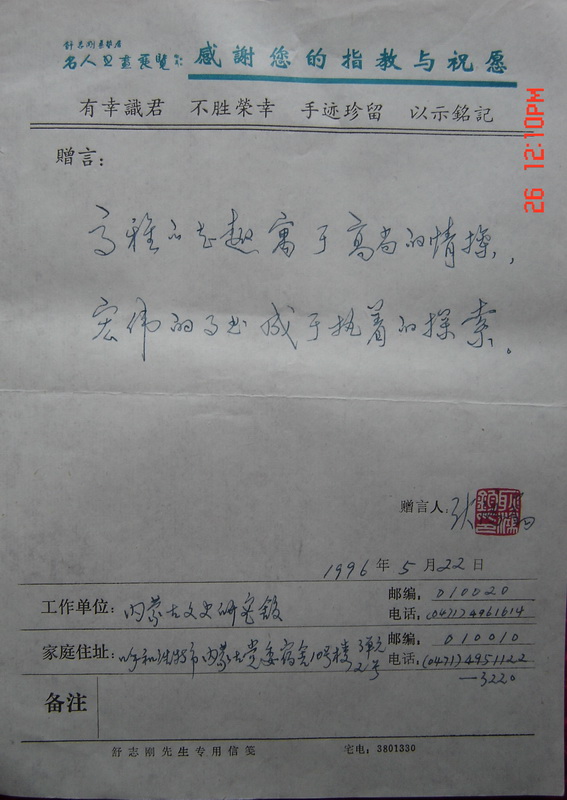 舒志刚易学居
名人书画展览 感謝您的指教与祝愿
有幸識君 不胜榮幸 手迹珍留 以示銘記
26 12:10PM
赠言:
高雅的志趣寓于高尚的情操,
宏伟的事业成于执着的探索。
赠言人:
1996年5月22日
工作单位: 内蒙古文史研究馆
邮编, 010020
电话: (0471) 4961614
家庭住址: 呼和浩特市内蒙古党委宿舍10号楼3单元
邮编: 010010
72号
电话: (0471) 4951122
—3220
备注
舒志刚先生专用信笺 宅电: 3801330